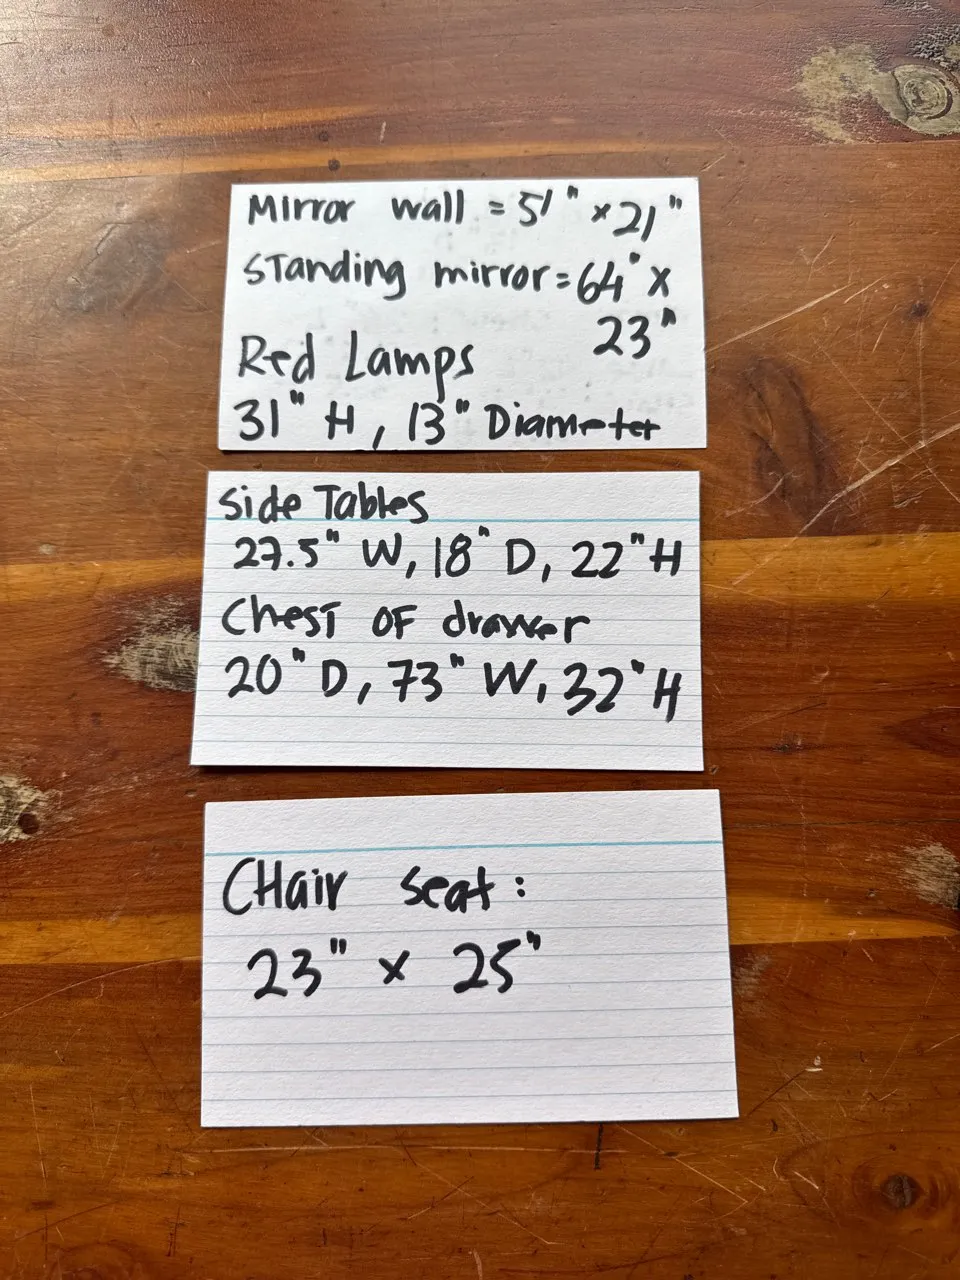 Mirror wall = 51" x 21"
Standing mirror = 64" x
23"
Red Lamps
31" H, 13" Diameter
Side Tables
27.5" W, 18" D, 22" H
Chest OF drawer
20" D, 73" W, 32" H
CHair seat:
23" x 25"